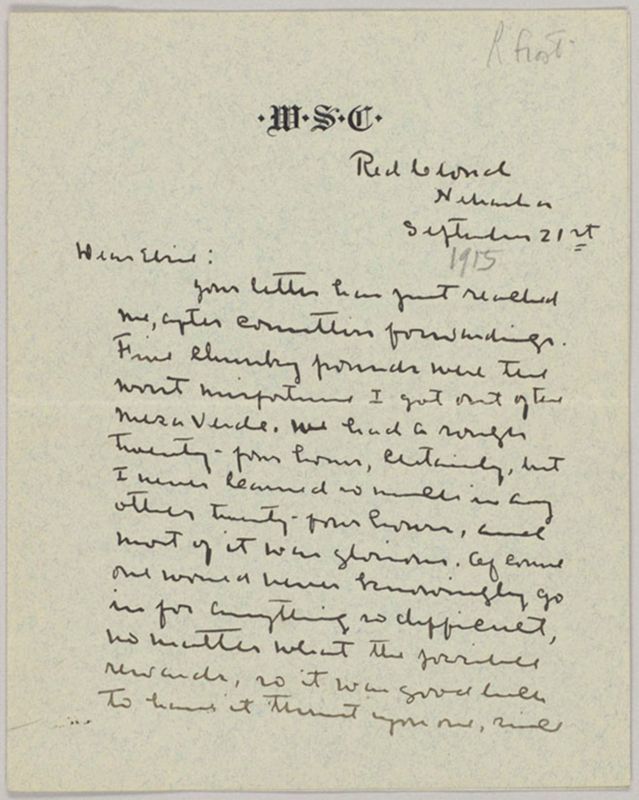 R Frost
·W·S·C·
Red Cloud
Nebraska
September 21st
1915
Dear Elsie:
Your letter has just reached
me, after countless forwardings.
Five thumping pounds were the
worst misfortune I got out of the
Mesa Verde. We had a rough
twenty-four hours, certainly, but
I never learned so much in any
other twenty-four hours, and
most of it was glorious. Of course
one would never knowingly go
in for anything so difficult,
no matter what the possible
rewards, so it was good luck
to have it thrust upon one, and